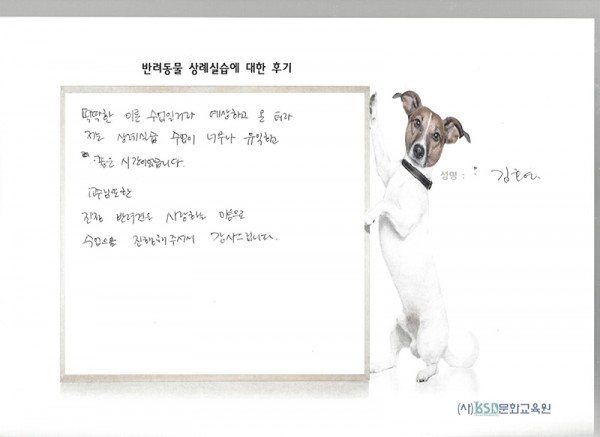 반려동물 상례실습에 대한 후기
딱딱한 이론 수업일거라 예상하고 온 터라
저도 상례실습 수업이 너무나 유익하고
좋은 시간이었습니다.
성명 :
교수님또한
진정 반려견을 사랑하는 마음으로
수업을 진행해주셔서 감사드립니다.
(사)KSD문화교육원